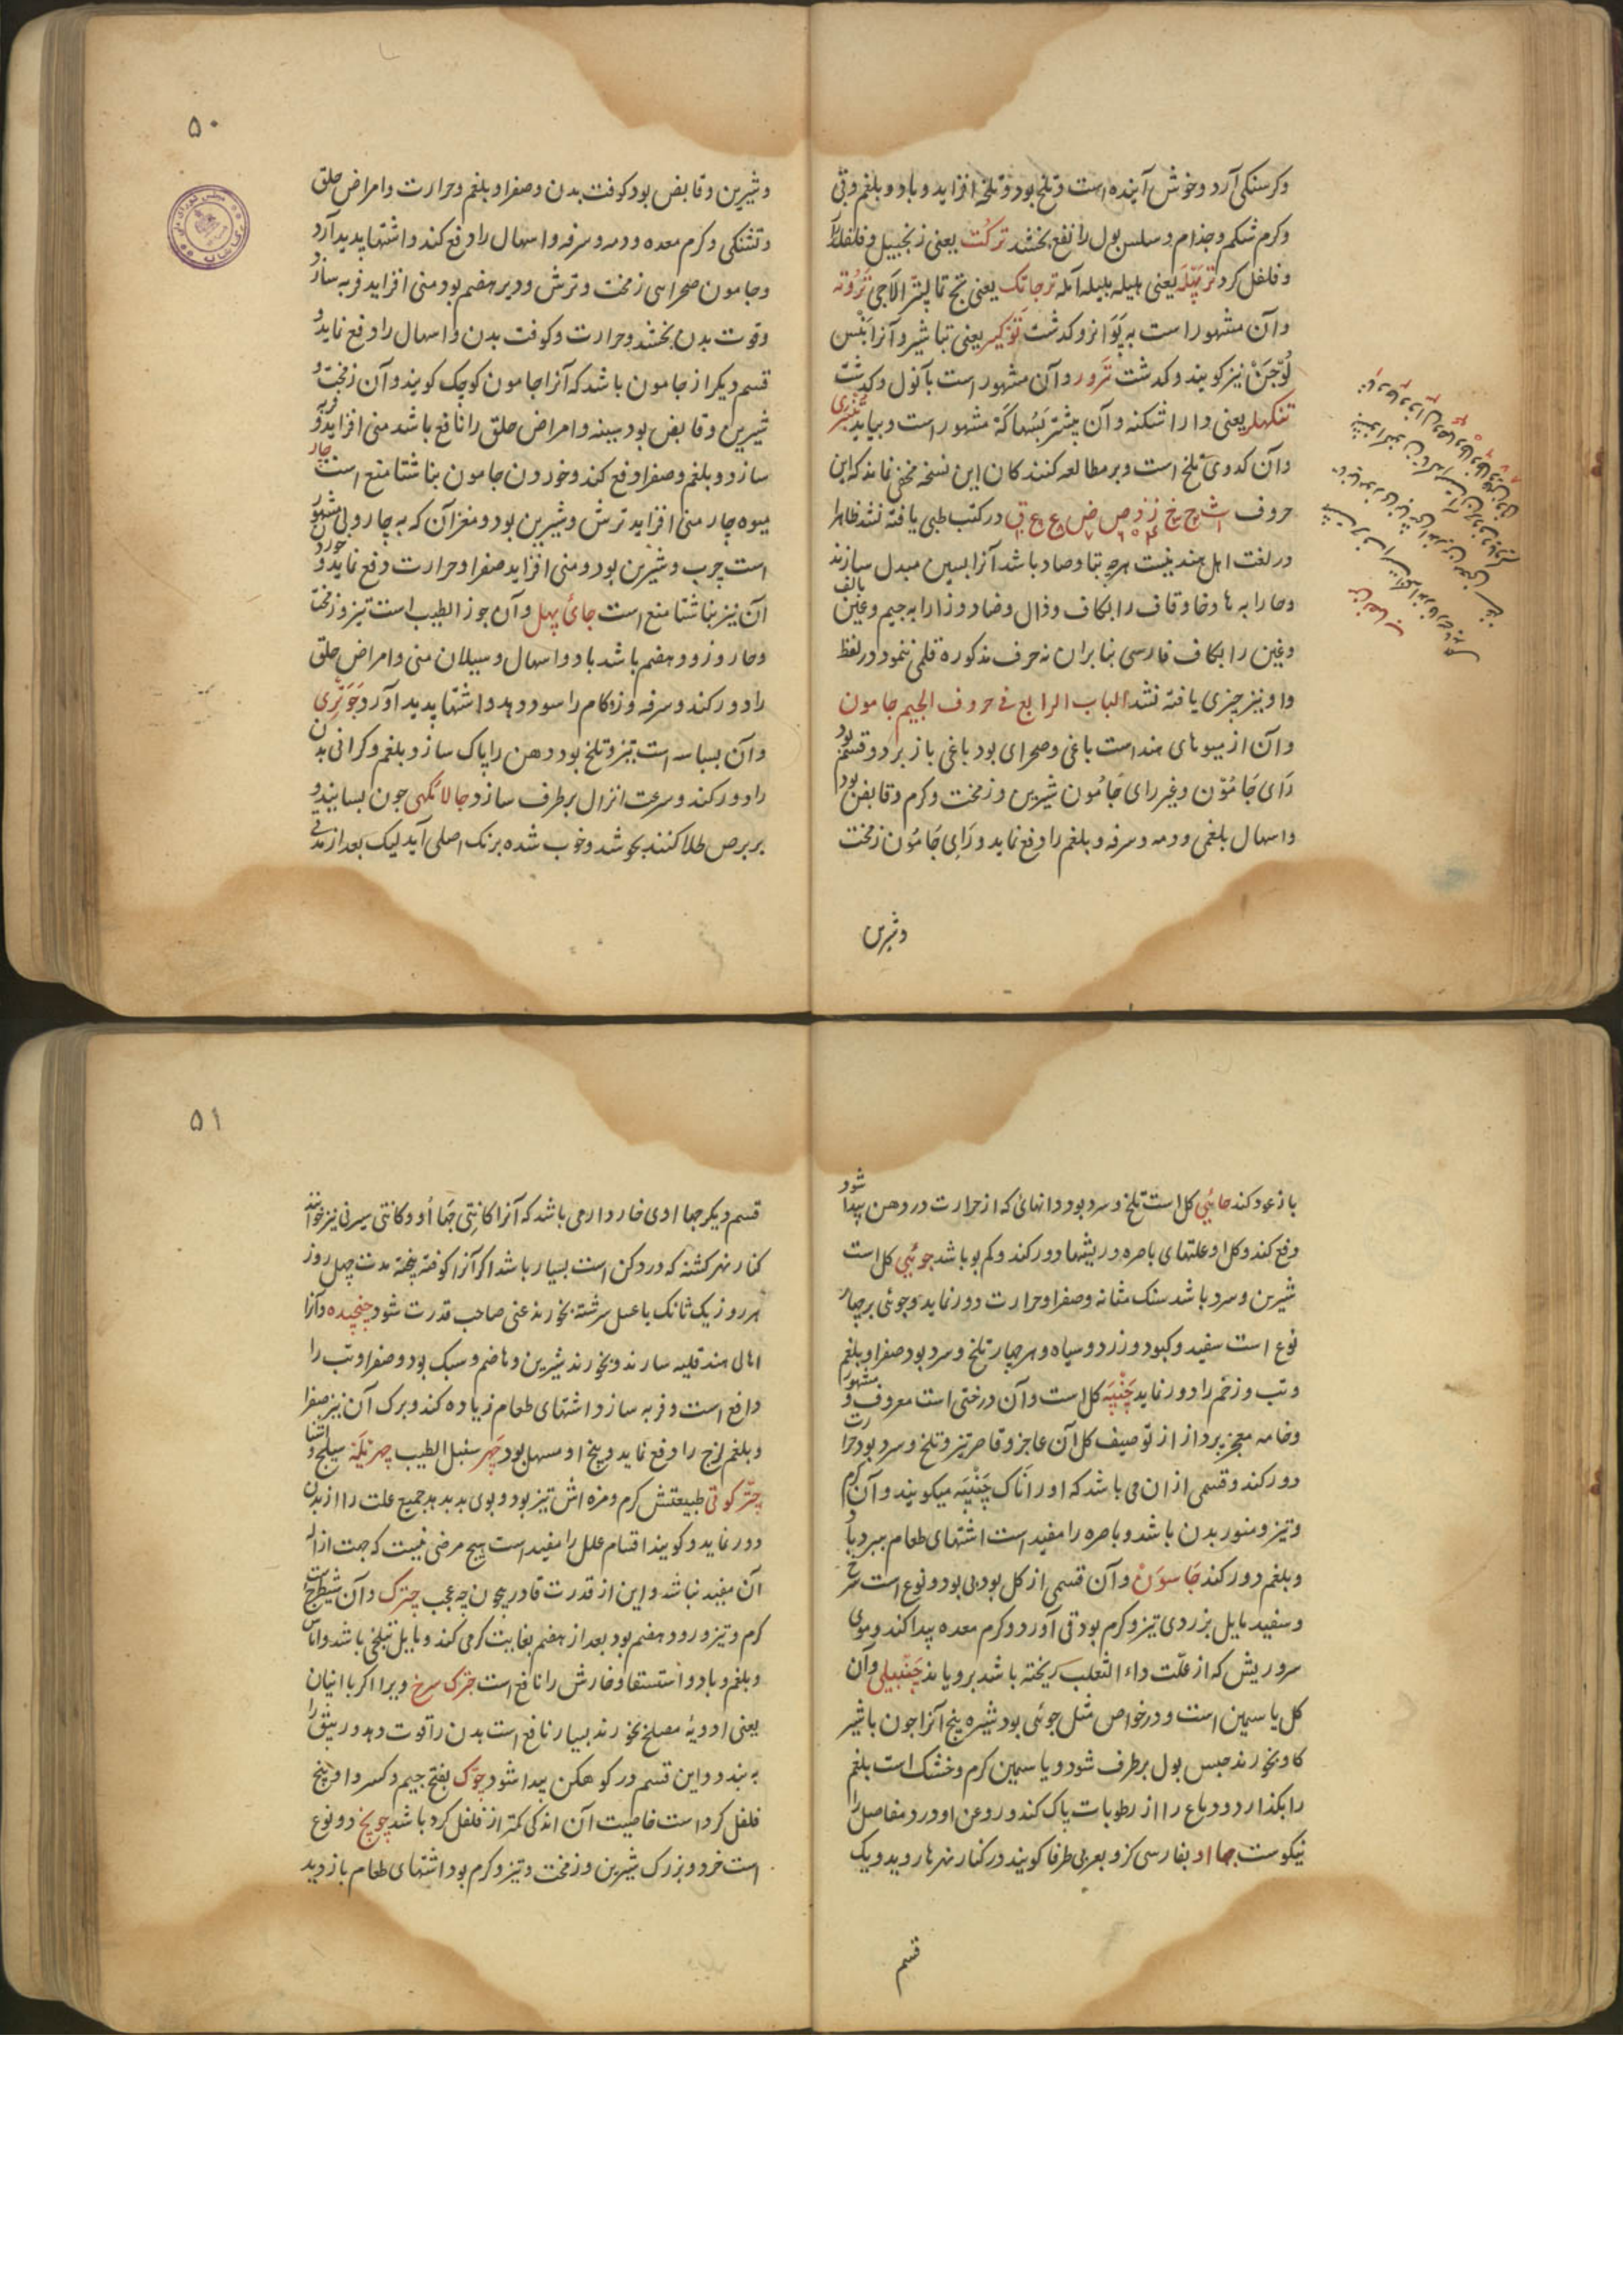 وکرسنکی آرد وخوش آینده است و تلخ بود و تلخه افزاید و باد و بلغم وقی
وکرم شکم وجذام وسلس بول را نفع بخشد ترکت یعنی زنجبیل وفلفل دراز
و فلفل کرد ترپهله یعنی هلیله بلیله آمله ترجاتک یعنی تج تمالپتر الاجی تروته
وآن مشهور است به پوانر وکدشت توکیر یعنی تباشیر وآنرا بنس
لوچن نیز کویند وکدشت ترور وآن مشهور است بآنول وکدشت
تنکهار یعنی دارا شکنه وآن بیشتر بسهاکه مشهور است وبیاید تتبری
وآن کدوی تلخ است وبر مطالعه کنندکان این نسخه مخفی نماند که این
حروف ث ح خ ذ ز ص ض ع غ ق درکتب طبی یافته نشد ظاهرا
درلغت اهل هند نیست هرچه بثا وصاد باشد آنرا بسین مبدل سازند
وحا را به ها وخا وقاف را بکاف وذال وضاد وزا را به جیم وعین بالف
وغین را بکاف فارسی بنابران نه حرف مذکوره قلمی ننمود درلفظ
واو نیز چیزی یافته نشد الباب الرابع فی حروف الجیم جامون
وآن از میوهای هند است باغی وصحرای بود باغی باز بر دو قسم بود
رای جامون وغیر رای جامون شیرین وزمخت وکرم وقابض بود
واسهال بلغمی ودمه وسرفه وبلغم را دفع نماید ورای جامون زمخت
وشیرین
۵۰
وشیرین وقابض بود کوفت بدن وصفرا وبلغم وحرارت وامراض حلق
وتشنکی وکرم معده ودمه وسرفه واسهال را دفع کند واشتها پدید آرد
وجامون صحرایی زمخت وترش ودیر هضم بود منی افزاید فربه سازد
وقوت بدن بخشد وحرارت وکوفت بدن واسهال را دفع نماید و
قسم دیکر از جامون باشد که آنرا جامون کوچک کویند وآن زمخت و
شیرین وقابض بود سینه وامراض حلق را نافع باشد منی افزاید و فربه
سازد وبلغم وصفرا دفع کند وخوردن جامون بناشتا منع است چار
میوه چار منی افزاید ترش وشیرین بود ومغز آن که به چارولی مشهور
است چرب وشیرین بود ومنی افزاید صفرا وحرارت دفع نماید وخورد
آن نیز بناشتا منع است جائی پهل وآن جوز الطیب است تیز وزمخت
وحار وزود هضم باشد باد واسهال وسیلان منی وامراض حلق
را دور کند وسرفه وزکام را سود دهد واشتها پدید آورد جوتری
وآن بسباسه است تیز وتلخ بود دهن را پاک سازد وبلغم وکرانی بدن
را دور کند وسرعت انزال برطرف سازد جالانکهی چون بسایند و
بر برص طلا کنند بجوشد وخوب شده برنک اصلی آید لیک بعد از مدتی
باز عود کند جائیی کل است تلخ وسرد بود دانهائ که از حرارت در دهن پیدا شود
دفع کند وکل او علتهای باصره وریشها دور کند وکم بو باشد جوئیی کل است
شیرین وسرد باشد سنک مثانه وصفرا وحرارت دور نماید وجوئی بر چهار
نوع است سفید وکبود وزرد وسیاه وهر چهار تلخ وسرد بود صفرا وبلغم
وتب وزخم را دور نماید چنپه کل است وآن درختی است معروف و مشهور
وخامه معجز پرداز از توصیف کل آن عاجز وقاصر تیز وتلخ وسرد بود حرارت
دور کند وقسمی از ان می باشد که او را ناک چنپه میکویند وآن کرم
وتیز ومنور بدن باشد وباصره را مفید است اشتهای طعام ببرد باد
وبلغم دور کند جاسون وآن قسمی از کل بود بی بو دونوع است سرخ
وسفید مایل بزردی تیز وکرم بود قی آورد وکرم معده پیدا کند وموی
سر وریش که از علّت داء الثعلب ریخته باشد برویاند چنبیلی وآن
کل یاسمین است ودرخواص مثل جوئی بود شیره بیخ آنرا چون باشیر
کاو بخورند حبس بول برطرف شود ویاسمین کرم وخشک است بلغم
را بکذارد ودماغ را از رطوبات پاک کند وروغن او درد مفاصل را
نیکوست جهااو بفارسی کز وبعربی طرفا کویند در کنار نهرها روید ویک
قسم
۵۱
قسم دیکر جهااو ی خاردار می باشد که آنرا کانتی جهااو وکانتی سیرنی نیز خوانند
کنار نهر کشنه که دردکن است بسیار باشد اکر آنرا کوفته پخته مدت چهل روز
هر روز یک ثانک باعسل سرشته بخورند عنین صاحب قدرت شود چنچیده وآنرا
اهالی هند قلیه سازند وبخورند شیرین وهاضم وسبک بود وصفرا وتب را
دافع است وفربه سازد اشتهای طعام زیاده کند وبرک آن نیز صفرا
وبلغم لزج را دفع نماید وبیخ او مسهل بود چهر سنبل الطیب
چترکوتی طبیعتش کرم ومزه اش تیز بود وبوی بد بدهد جمیع علت را از بدن
دور نماید وکویند اقسام علل را مفید است هیچ مرضی نیست که جهت ازاله
آن مفید نباشد واین از قدرت قادر بیچون چه عجب چترک وآن شیطرج است
کرم وتیز وزود هضم بود بعد از هضم بغایت کرمی کند ومایل بتلخی باشد واماس
وبلغم وباد واستسقا وخارش را نافع است چترک سرخ ویرا اکر باانیان
یعنی ادویهٔ مصلح بخورند بسیار نافع است بدن را قوت دهد وزیبق را
به بندد واین قسم در کوهکن پیدا شود چوک بفتح جیم وکسر واو بیخ
فلفل کرد است خاصیت آن اندکی کمتر از فلفل کرد باشد چوبخ دونوع
است خرد وبزرک شیرین وزمخت وتیز وکرم بود اشتهای طعام باز دید